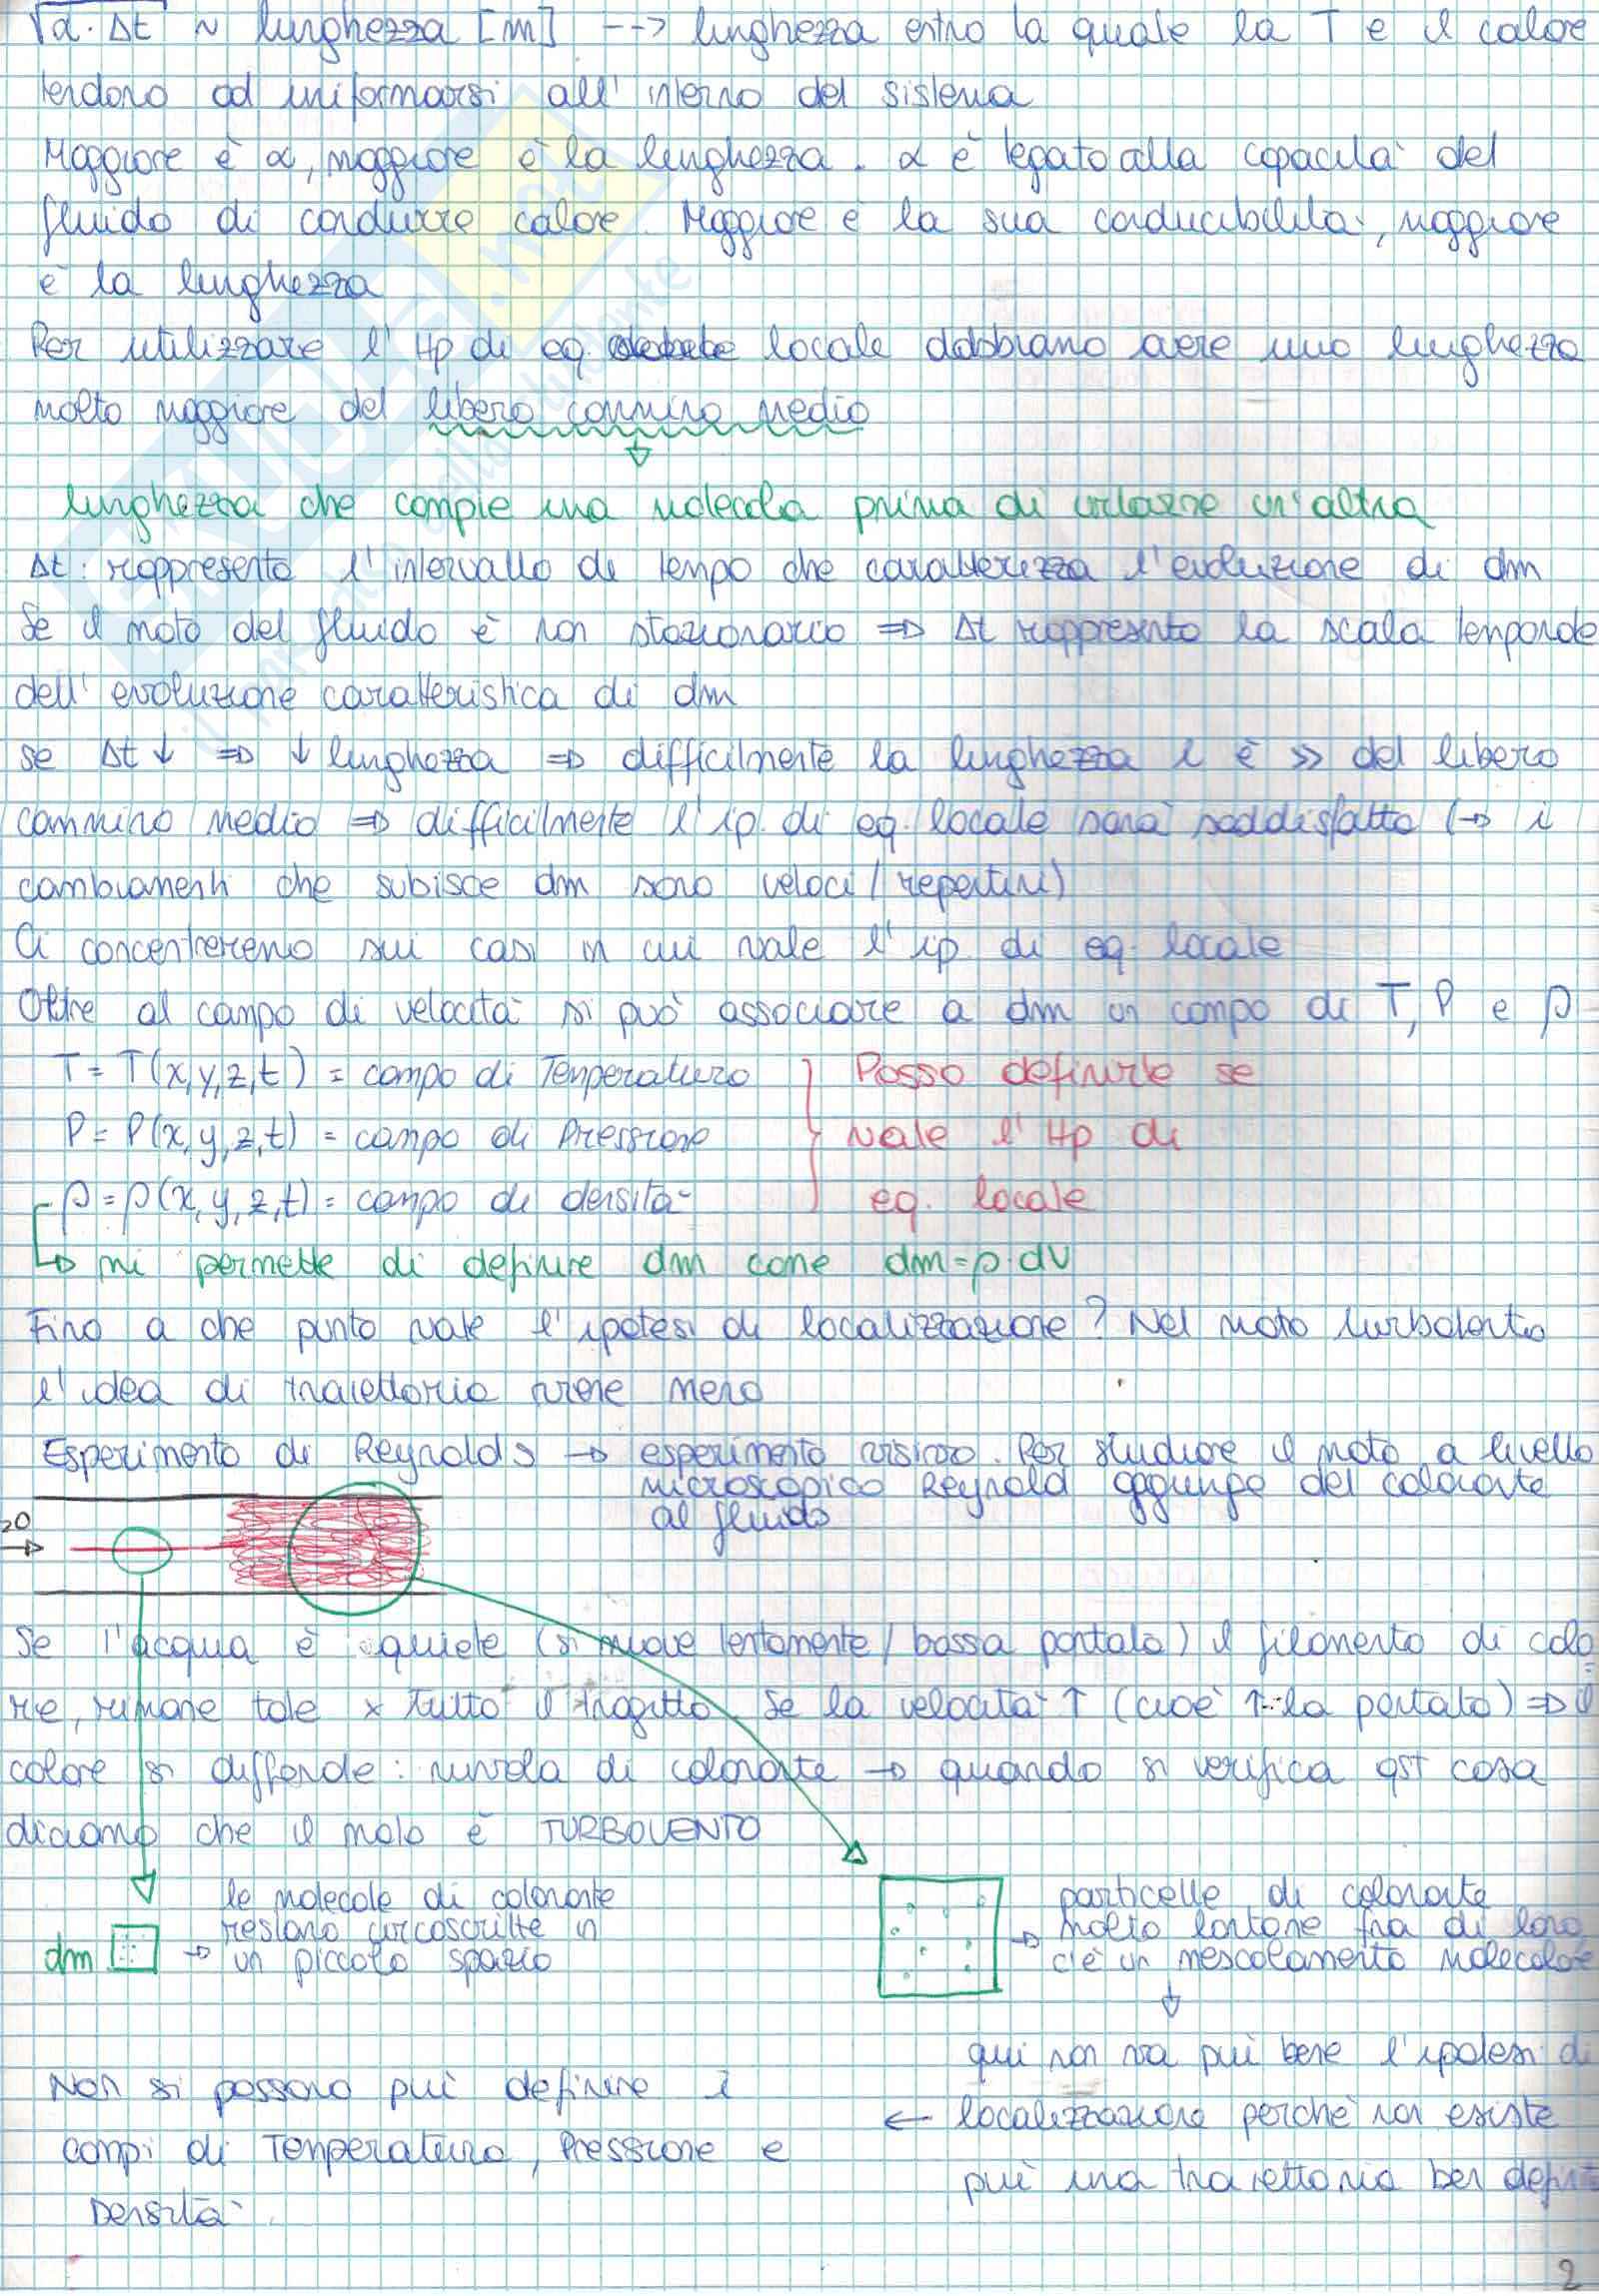 √α·Δt ~ lunghezza [m] --> lunghezza entro la quale la T e il calore
tendono ad uniformarsi all'interno del sistema
Maggiore è α, maggiore è la lunghezza. α è legato alla capacità del
fluido di condurre calore. Maggiore è la sua conducibilità, maggiore
è la lunghezza
Per utilizzare l'Hp di eq. locale dobbiamo avere una lunghezza
molto maggiore del libero cammino medio
lunghezza che compie una molecola prima di urtarne un'altra
Δt: rappresenta l'intervallo di tempo che caratterizza l'evoluzione di dm
Se il moto del fluido è non stazionario => Δt rappresenta la scala temporale
dell'evoluzione caratteristica di dm
se Δt ↓ => ↓ lunghezza => difficilmente la lunghezza l è >> del libero
cammino medio => difficilmente l'ip. di eq. locale sarà soddisfatta (→ i
cambiamenti che subisce dm sono veloci/repentini)
Ci concentreremo sui casi in cui vale l'ip. di eq. locale
Oltre al campo di velocità si può associare a dm un campo di T, P e ρ
T = T(x,y,z,t) = campo di Temperatura
Posso definirle se
P = P(x,y,z,t) = campo di Pressione
vale l'Hp di
ρ = ρ(x,y,z,t) = campo di densità
eq. locale
→ mi permette di definire dm come dm=ρ·dV
Fino a che punto vale l'ipotesi di localizzazione? Nel moto turbolento
l'idea di traiettoria viene meno
Esperimento di Reynolds → esperimento visivo. Per studiare il moto a livello
microscopico Reynold aggiunge del colorante
al fluido
20
Se l'acqua è quiete (si muove lentamente/bassa portata) il filamento di colo
re, rimane tale x tutto il tragitto. Se la velocità ↑ (cioè ↑ la portata) => il
colore si diffonde: nuvola di colorante → quando si verifica qst cosa
diciamo che il moto è TURBOLENTO
le molecole di colorante
restano circoscritte in
un piccolo spazio
dm
particelle di colorante
molto lontane fra di loro,
c'è un mescolamento molecolare
qui non va più bene l'ipotesi di
localizzazione perchè non esiste
più una traiettoria ben definita
Non si possono più definire i
campi di Temperatura, Pressione e
Densità.
EKUOS.not
il mercatino dello studente
2